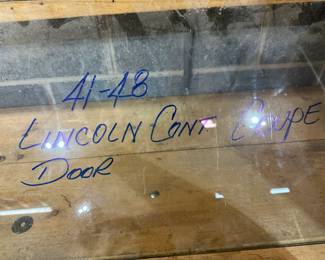 41-48
LINCOLN CONT COUPE
DOOR